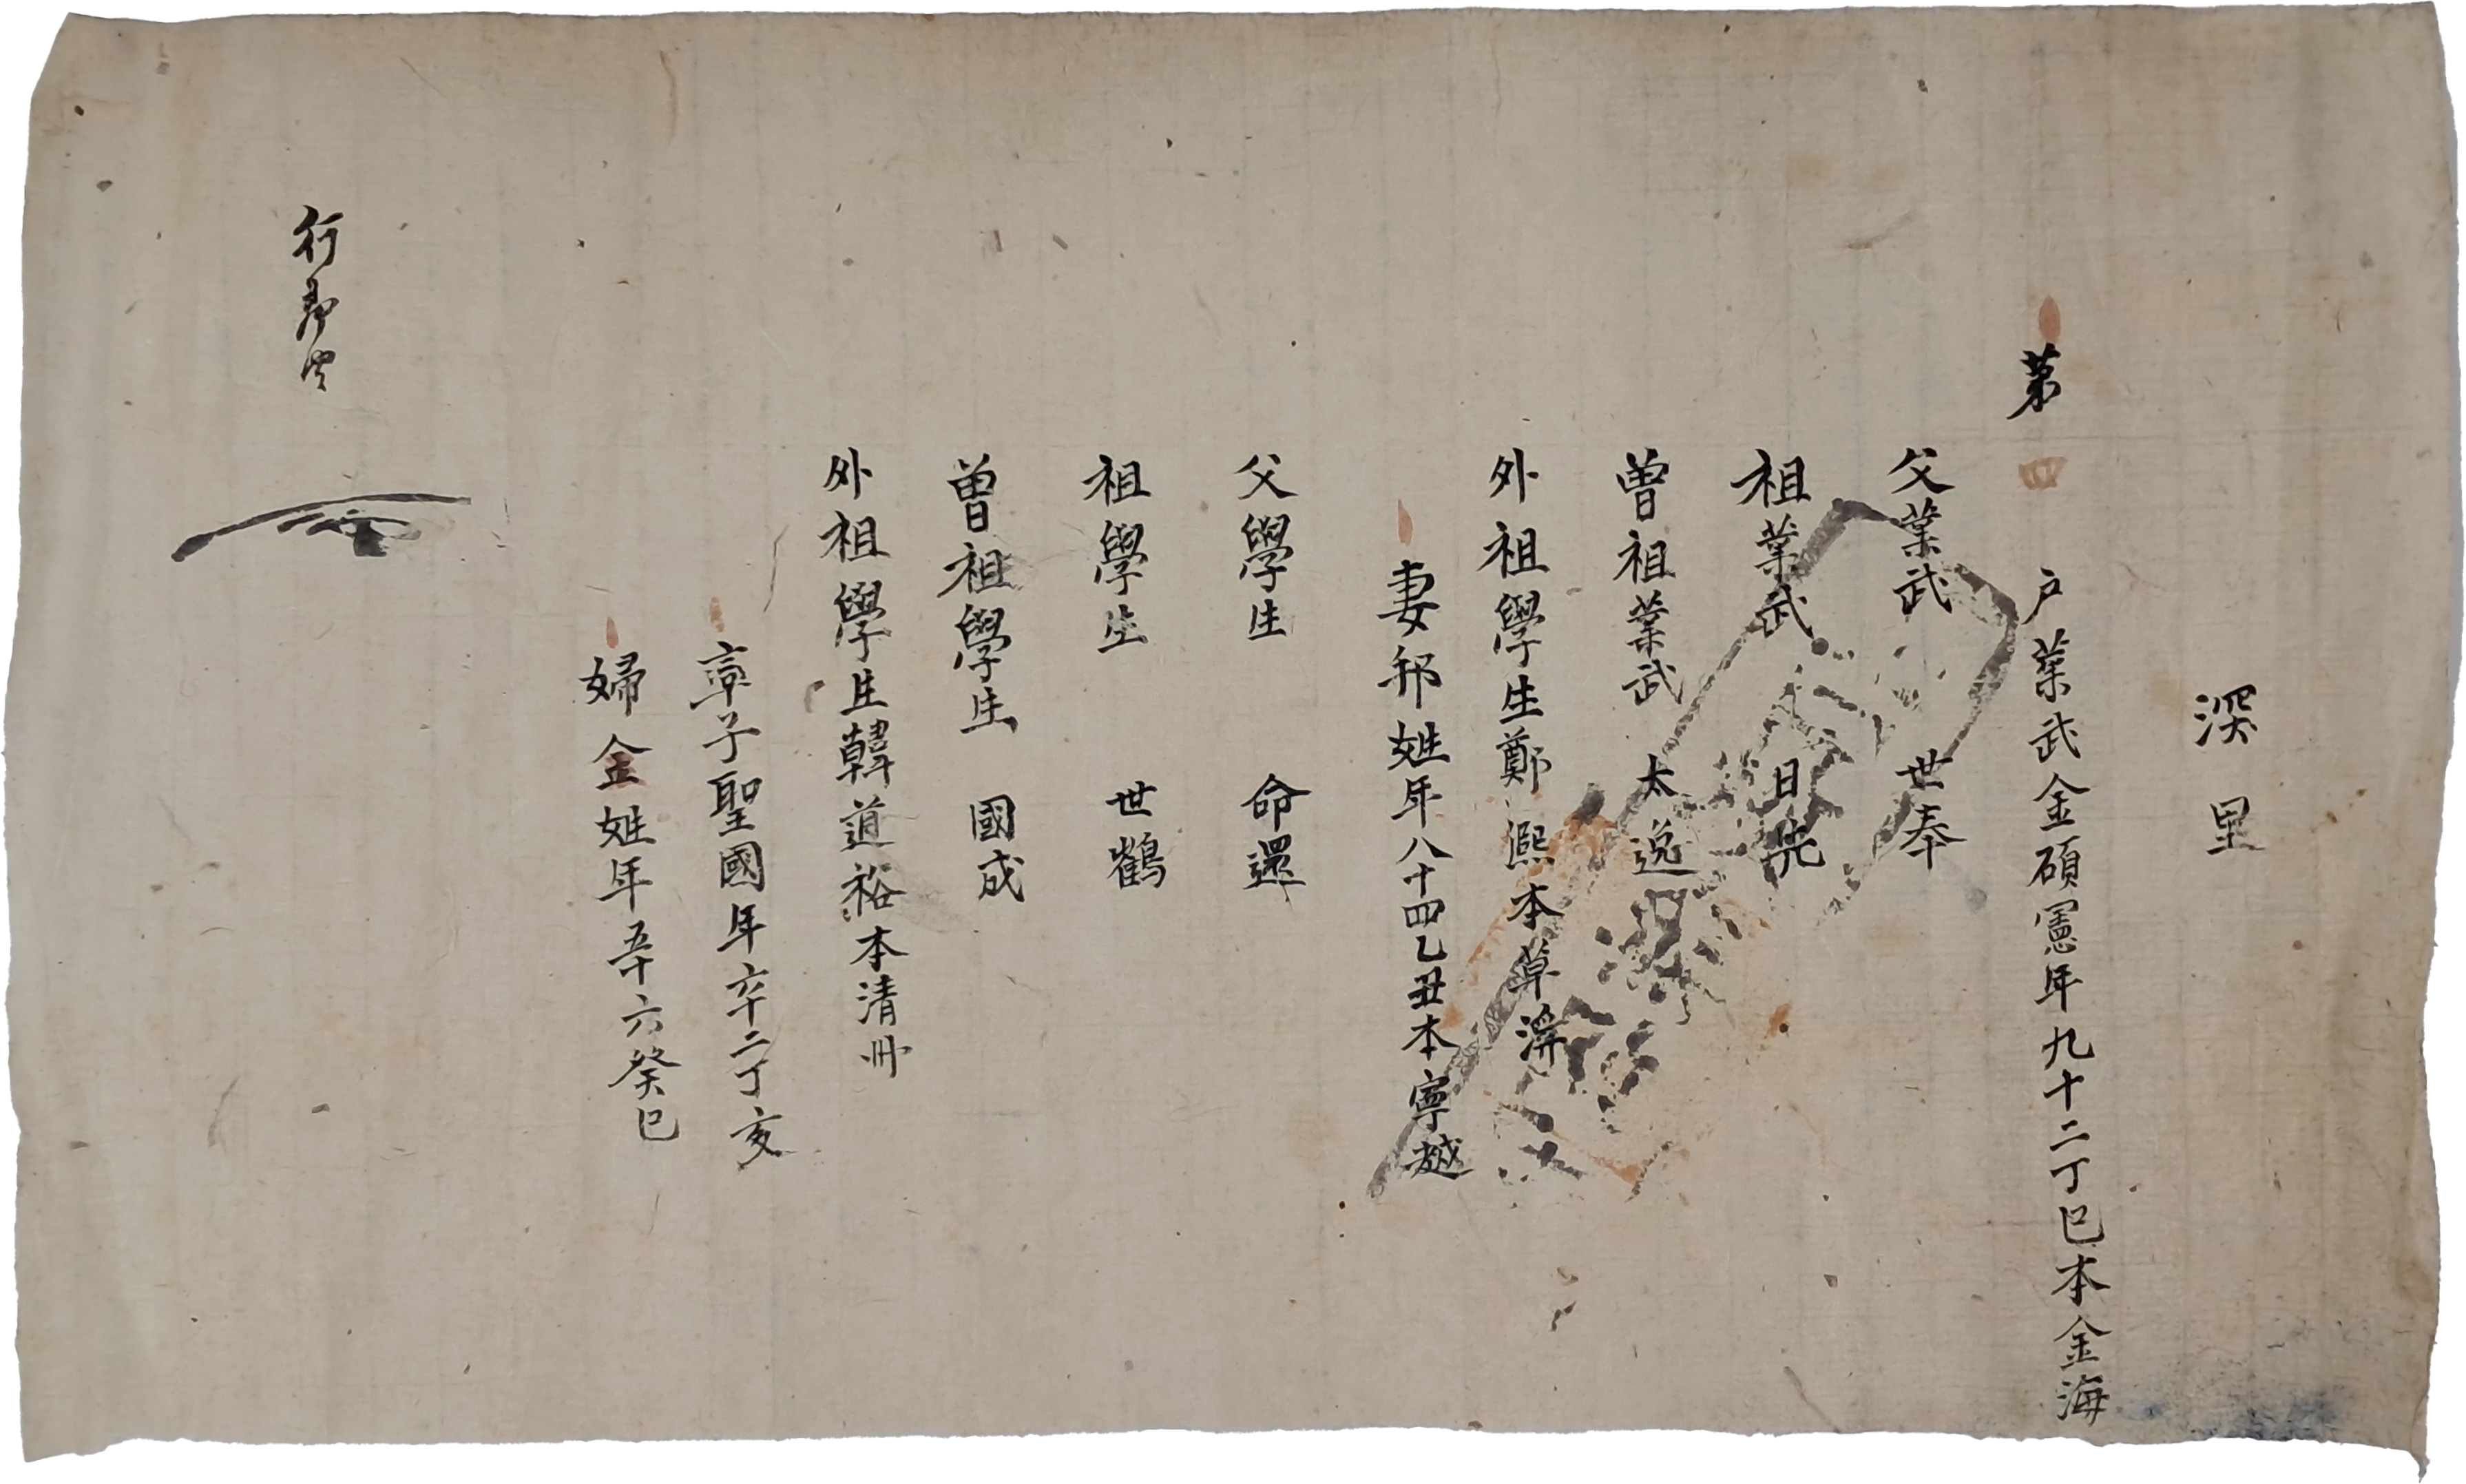 深里
第四 戶業武金碩憲年九十二丁巳本金海
父業武 世奉
祖業武 日先
曾祖業武 太逸
外祖學生鄭熙本草溪
妻 姓年八十四乙丑本寧越
父學生 命還
祖學生 世鶴
曾祖學生 國成
外祖學生韓道裕本清州
率子聖國年六十二丁亥
婦金姓年五十六癸巳
行郡守